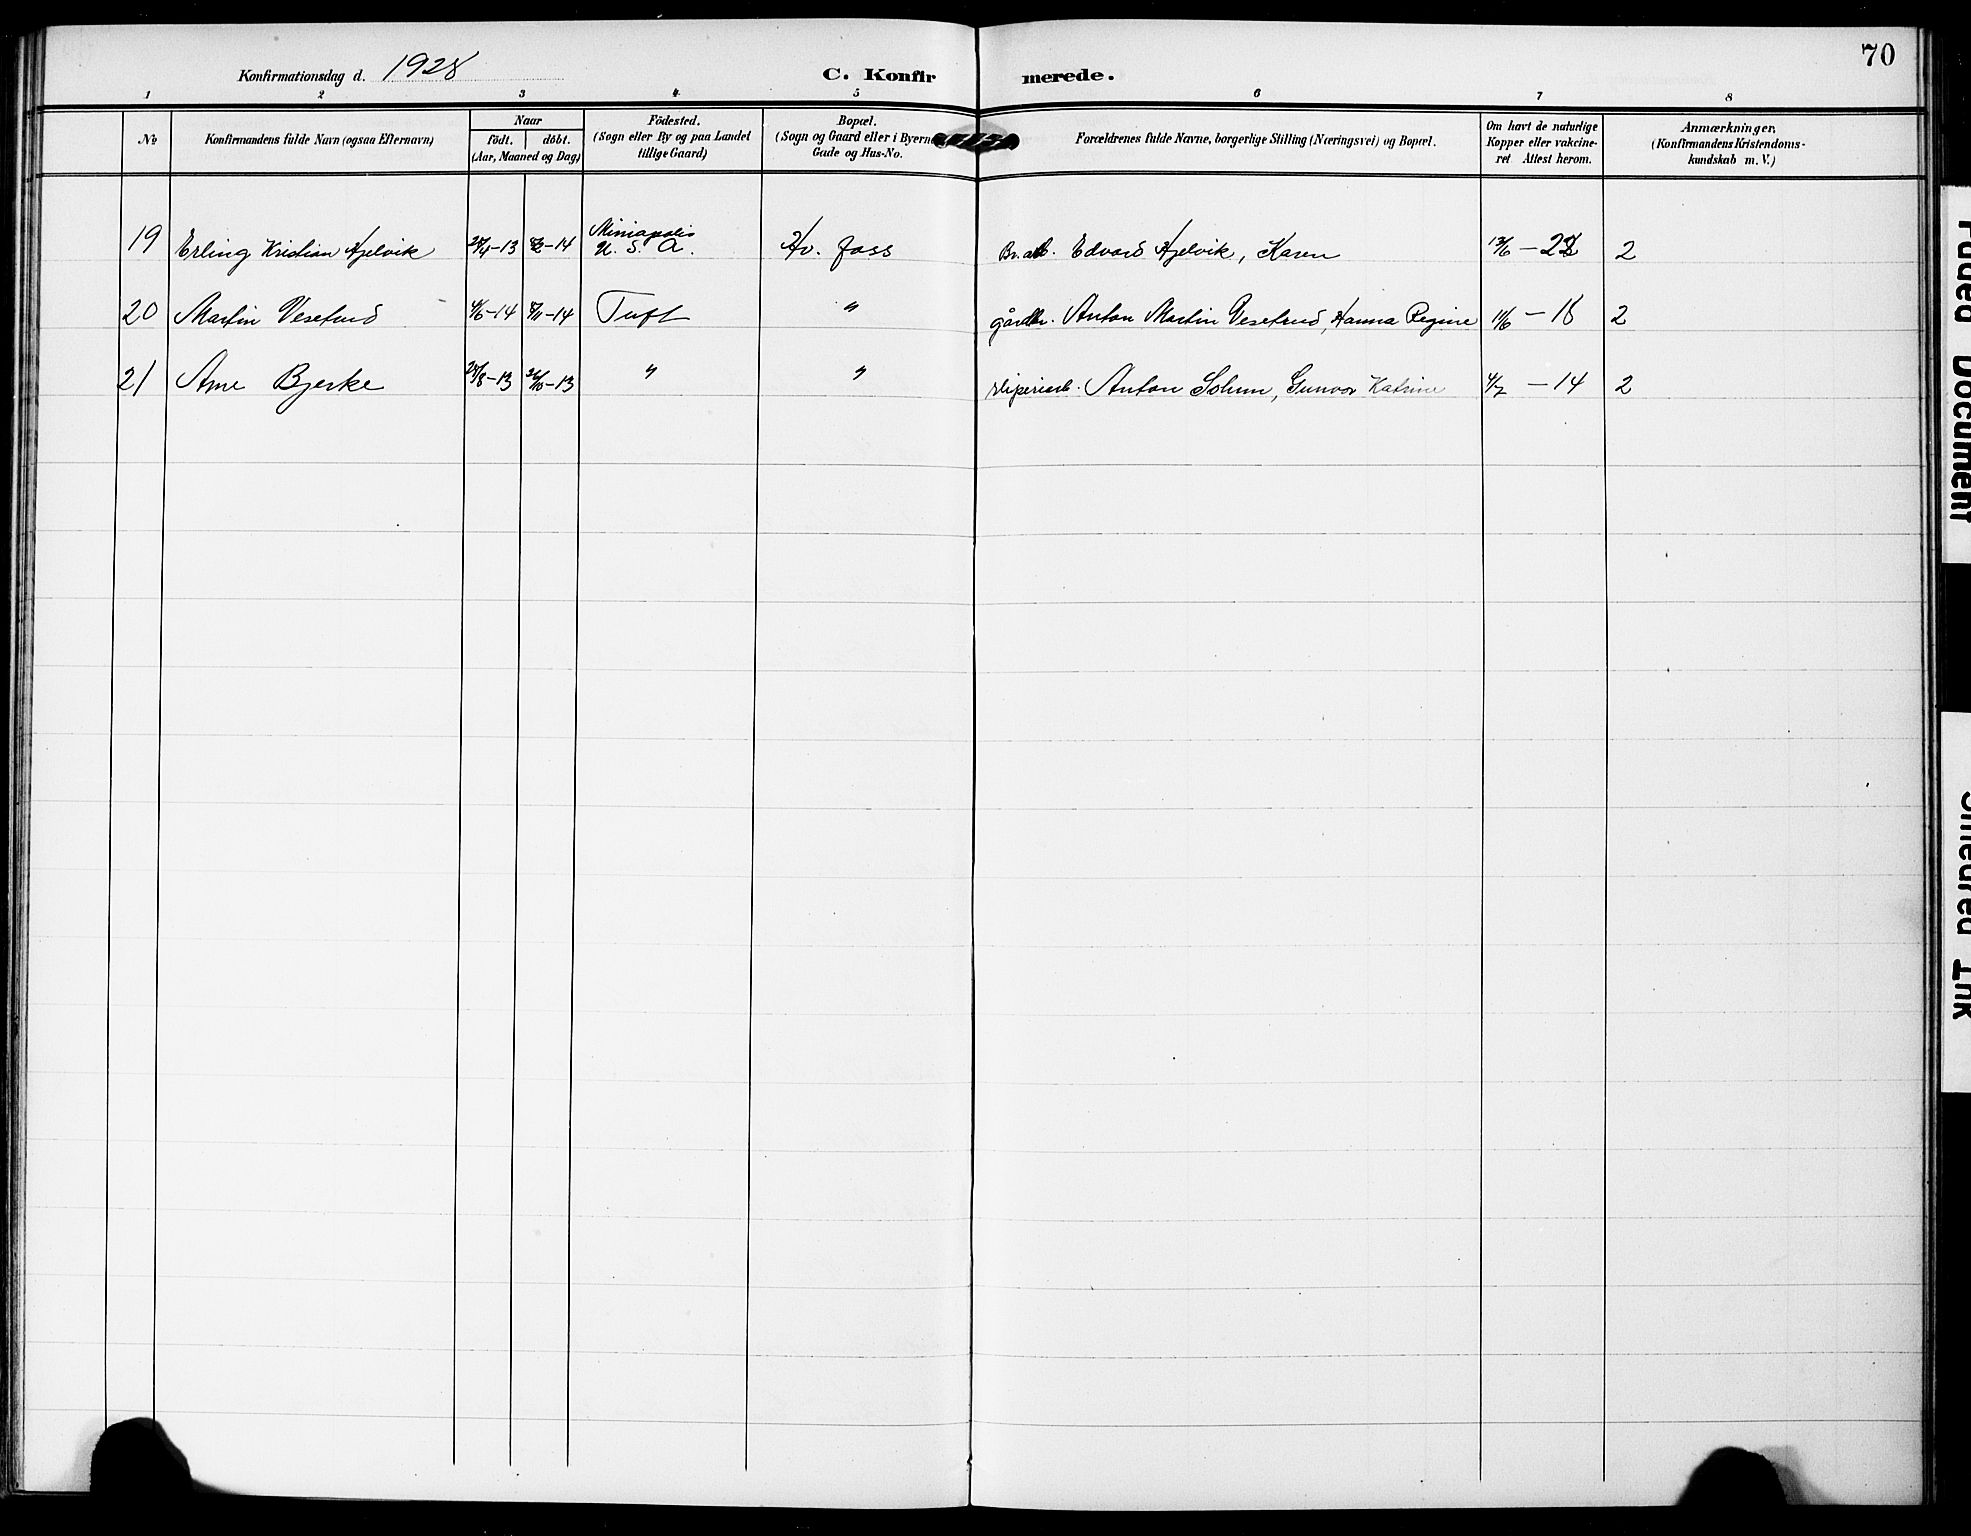 70
Konfirmationsdag d. 1928 C. Konfirmerede.
1 2 3 4 5 6 7 8
No Konfirmandens fulde Navn (ogsaa Efternavn) Naar födt. döbt. (Aar, Maaned og Dag) Födested. (Sogn eller By og paa Landet tillige Gaard) Bopæl. (Sogn og Gaard eller i Byerne Gade og Hus-No. Forældrenes fulde Navne, borgerlige Stilling (Næringsvei) og Bopæl. Om havt de naturlige Kopper eller vakcineret Attest herom. Anmærkninger, (Konfirmandens Kristendomskundskab m. V.)
19 Erling Kristian Hjelvik -13 -14 Miniapolis U. S. A. Hv. foss Br. arb. Edvard Hjelvik, Karen 13/6 - 2
20 Martin Vesetrud 4/6-14 8/11-14 Tuft " gårdbr. Anton Martin Vesetrud, Hanna Regine 11/6 - 18 2
21 Arne Bjerke 29/8-13 26/10-13 " " sliperiarb. Anton Solum, Gunvor Katrine 4/7 - 14 2
Faded Document
Smeared Ink